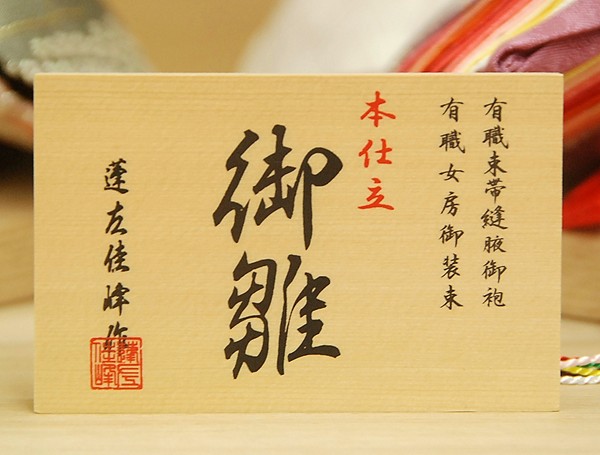 有職束帯縫腋御袍
有職女房御装束
本仕立
御雛
蓬左佳峰作